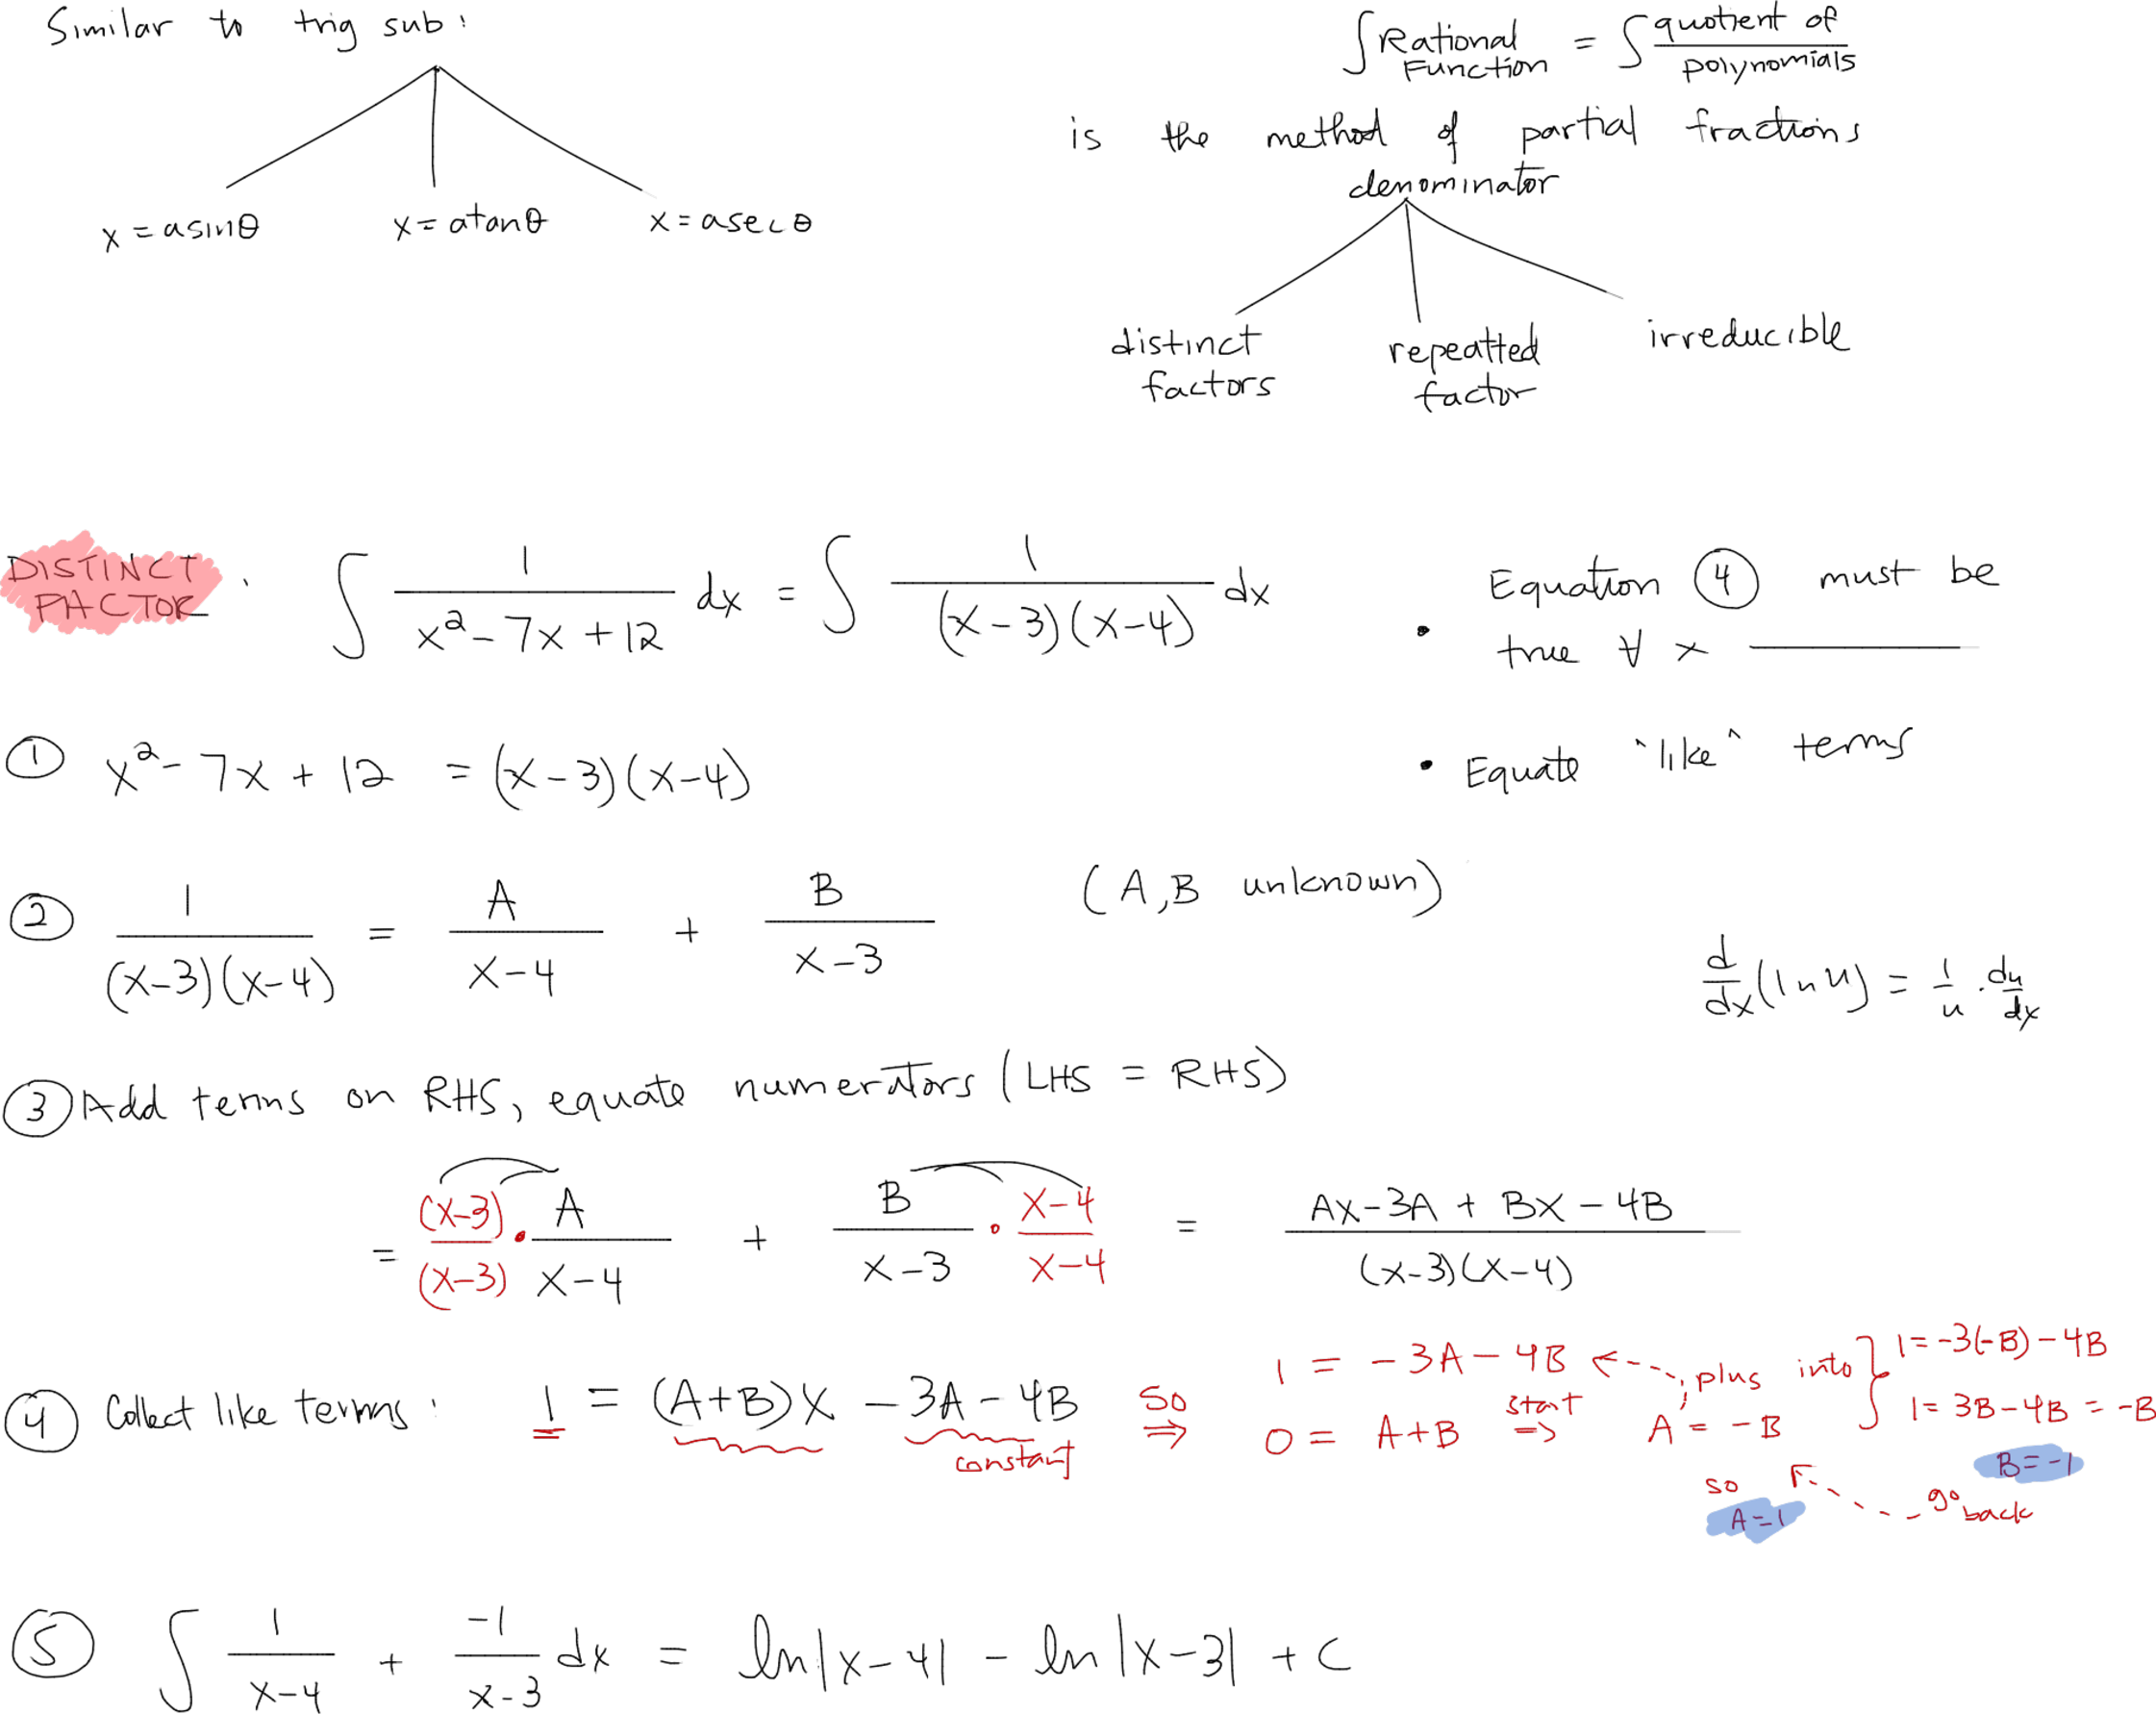 Similar to trig sub:
x = asinθ
x = atanθ
x = asecθ
∫ Rational Function = ∫ quotient of / polynomials
is the method of partial fractions
denominator
distinct factors
repeatted factor
irreducible
DISTINCT FACTOR : ∫ 1/(x² - 7x + 12) dx = ∫ 1/((x-3)(x-4)) dx
• Equation ④ must be
true ∀ x ______
① x² - 7x + 12 = (x-3)(x-4)
• Equate "like" terms
② 1/((x-3)(x-4)) = A/(x-4) + B/(x-3) (A,B unknown)
d/dx (ln u) = 1/u · du/dx
③ Add terms on RHS, equate numerators (LHS = RHS)
= (x-3)/(x-3) · A/(x-4) + B/(x-3) · x-4/x-4 = (Ax-3A + Bx - 4B)/((x-3)(x-4))
④ Collect like terms: 1 = (A+B)x - 3A - 4B
constant
so ⇒
1 = -3A - 4B
plus into
1 = -3(-B) - 4B
0 = A+B
start ⇒
A = -B
1 = 3B - 4B = -B
B = -1
so
A = 1
go back
⑤ ∫ 1/(x-4) + -1/(x-3) dx = ln|x-4| - ln|x-3| + C